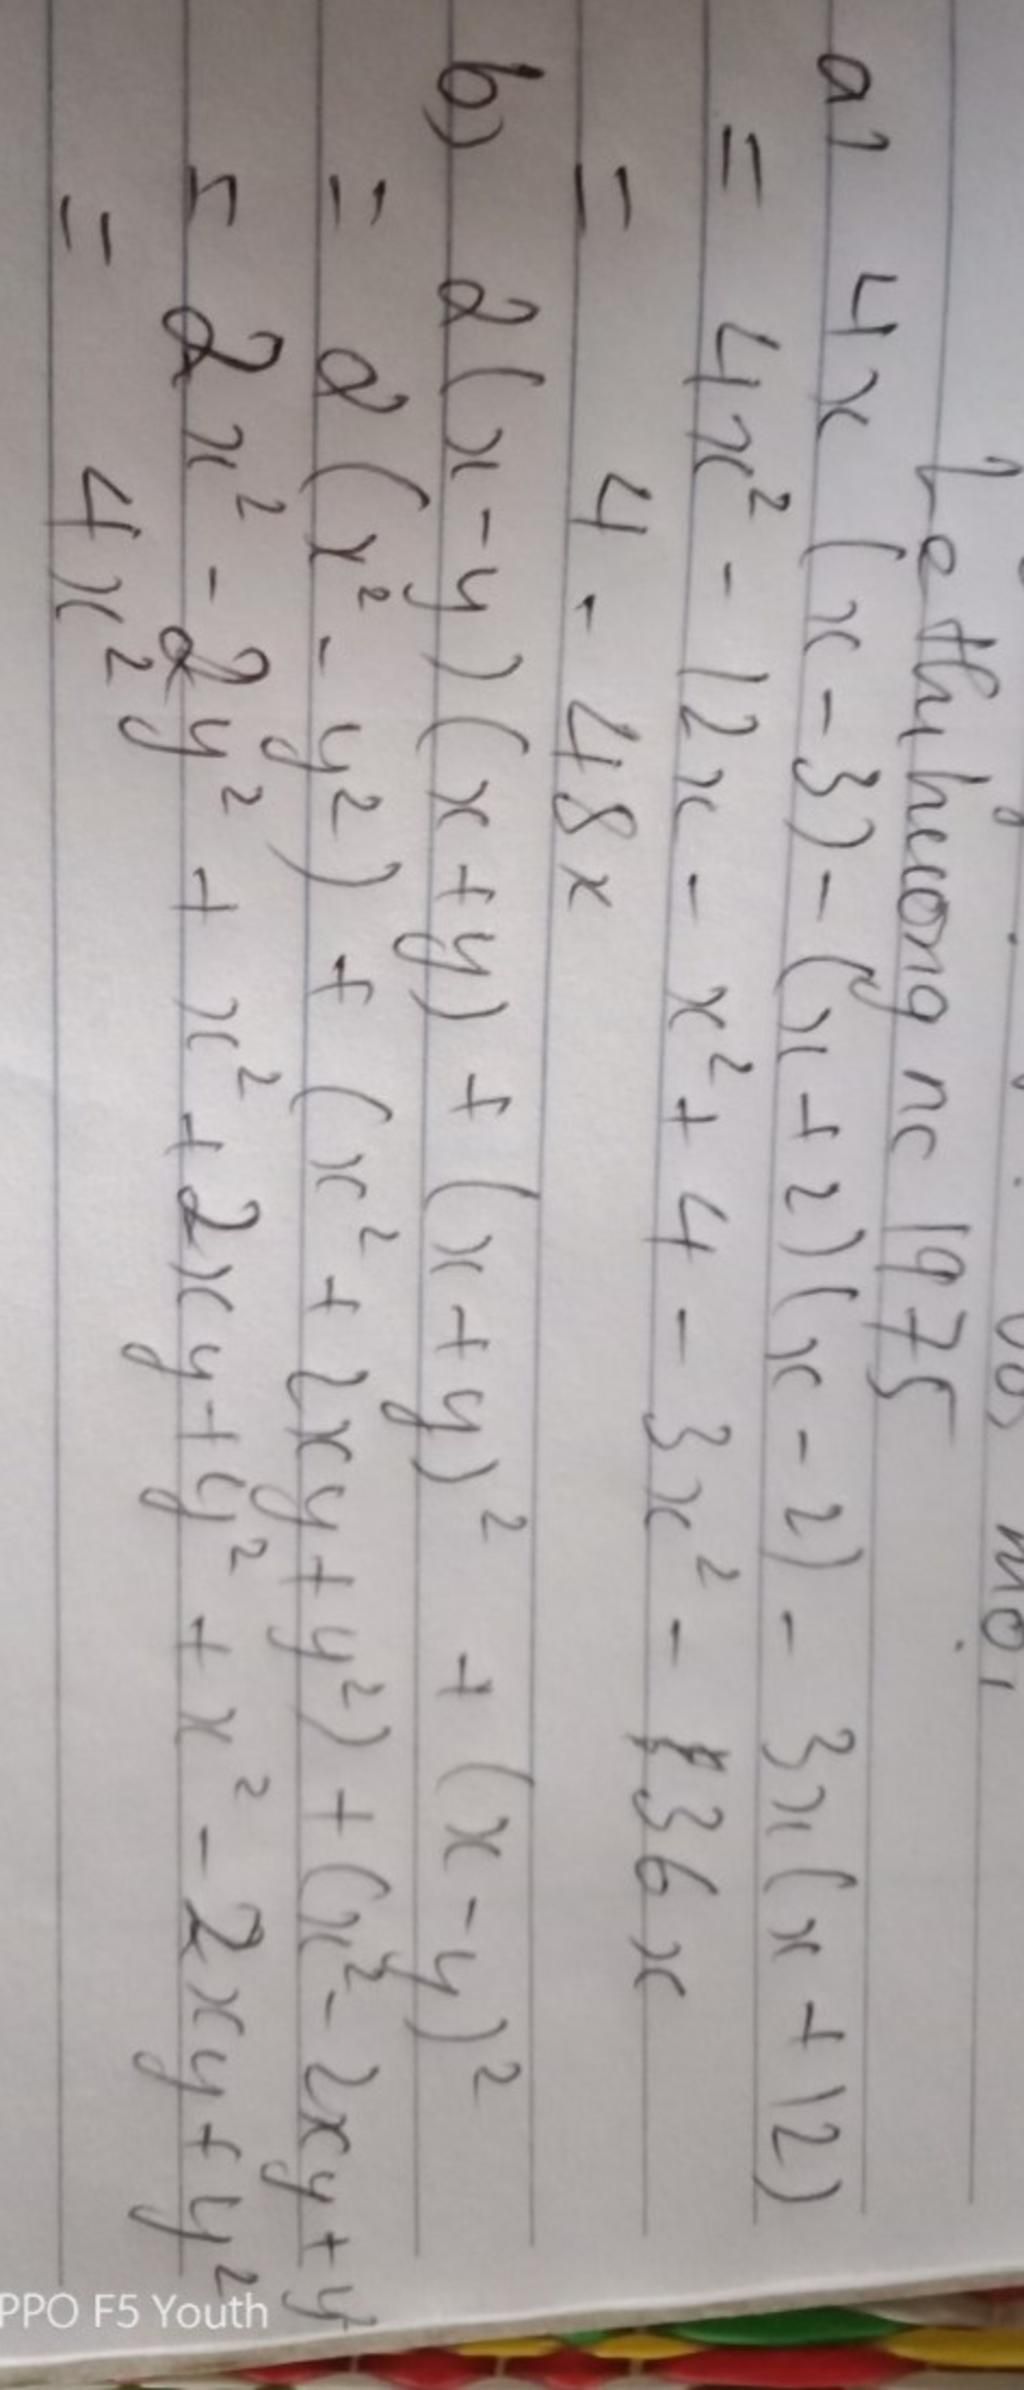 Lethihuong nc 1975
a) 4x (x - 3) - (x + 2)(x - 2) - 3x(x + 12)
= 4x² - 12x - x² + 4 - 3x² - 36x
= 4 - 48x
b) 2(x - y)(x + y) + (x + y)² + (x - y)²
= 2(x² - y²) + (x² + 2xy + y²) + (x² - 2xy + y²
= 2x² - 2y² + x² + 2xy + y² + x² - 2xy + y²
= 4x²
PPO F5 Youth